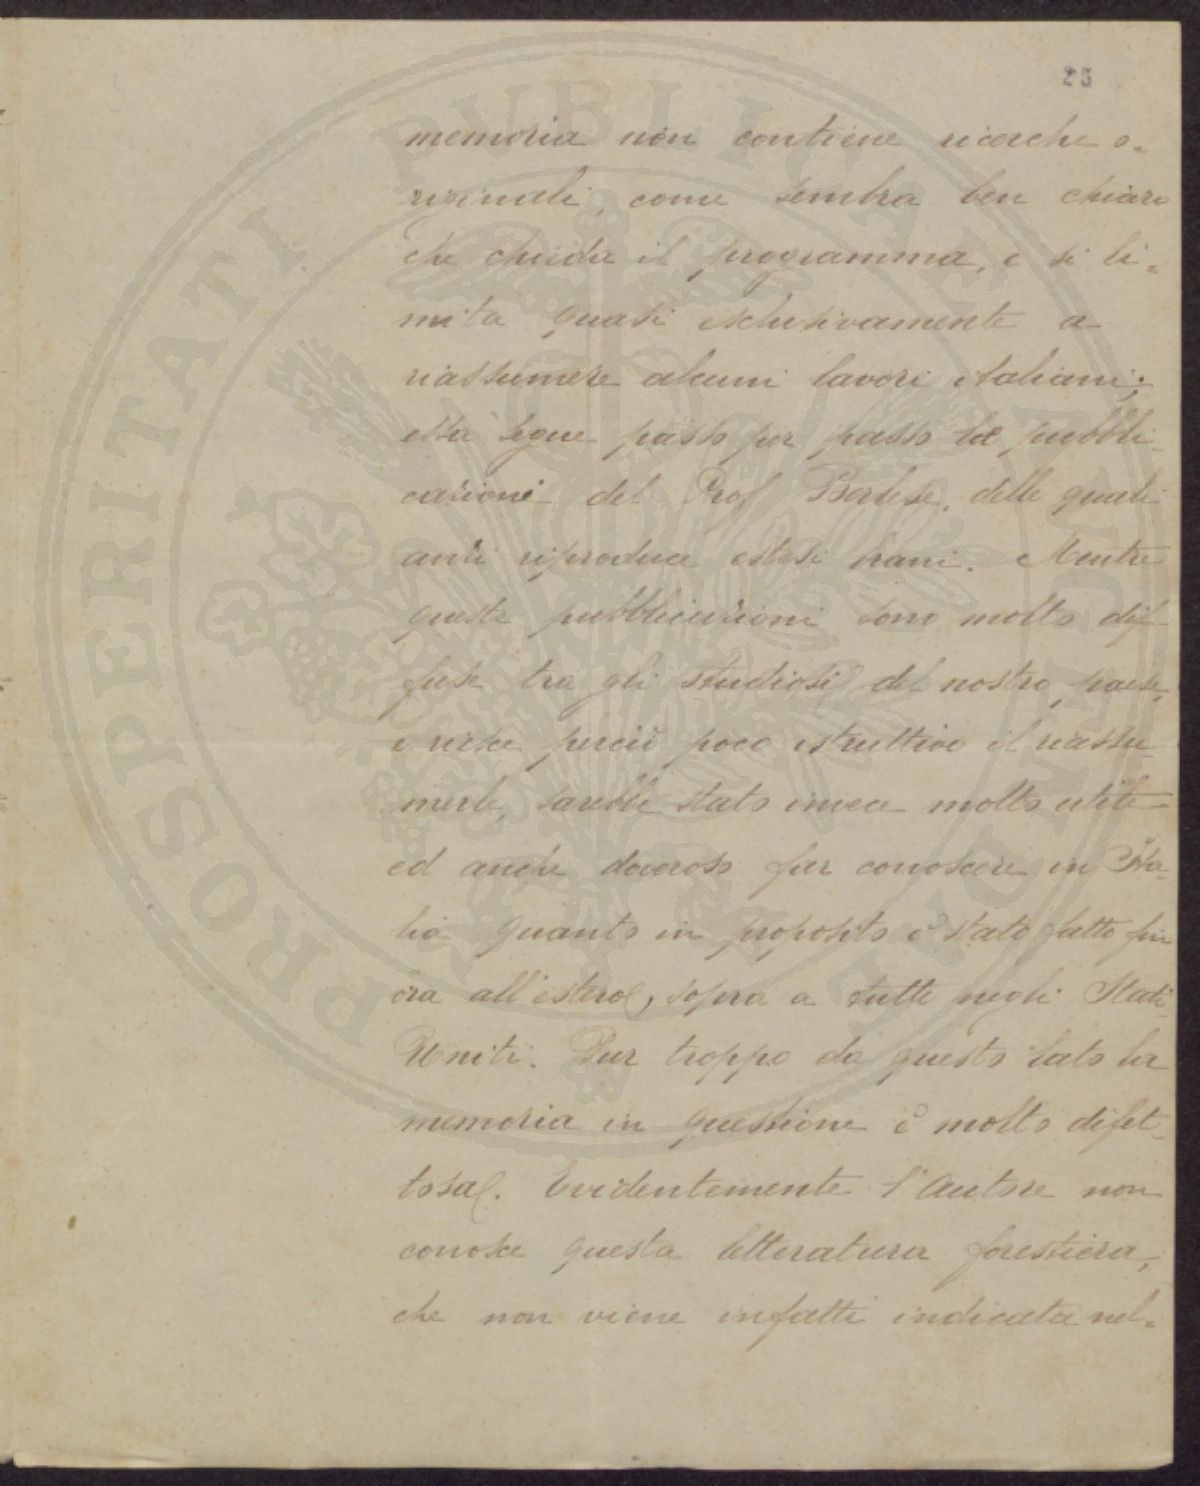 25
memoria non contiene ricerche o-
riginali, come sembra ben chiaro
che chieda il programma, e si li-
mita quasi esclusivamente a
riassumere alcuni lavori italiani;
essa segue passo per passo le pubbli-
cazioni del Prof Berlese, delle quali
anzi riproduce estesi brani. Mentre
queste pubblicazioni sono molto dif-
fuse tra gli studiosi del nostro paese,
e riesce perciò poco istruttivo il riassu-
merle, sarebbe stato invece molto utile
ed anche doveroso far conoscere in Ita-
lia quanto in proposito è stato fatto fin
ora all'estero, sopra a tutto negli Stati
Uniti. Pur troppo da questo lato la
memoria in questione è molto difet-
tosa. Evidentemente l'Autore non
conosce questa letteratura forestiera,
che non viene infatti indicata nel-
PROSPERITATI PUBLICAE AUGENDAE